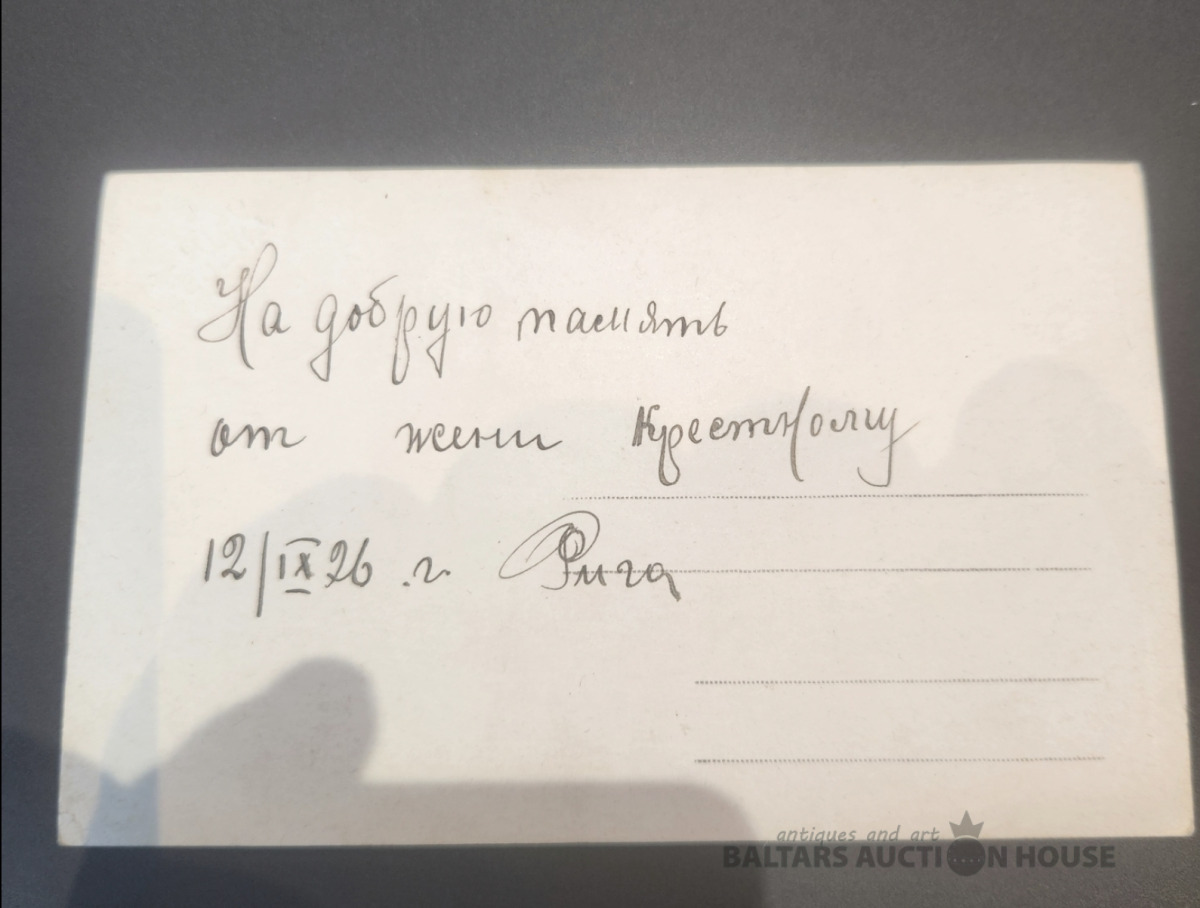 На добрую память
от жени Крестному
12/IX 26 .г. Рига
antiques and art
BALTARS AUCTION HOUSE